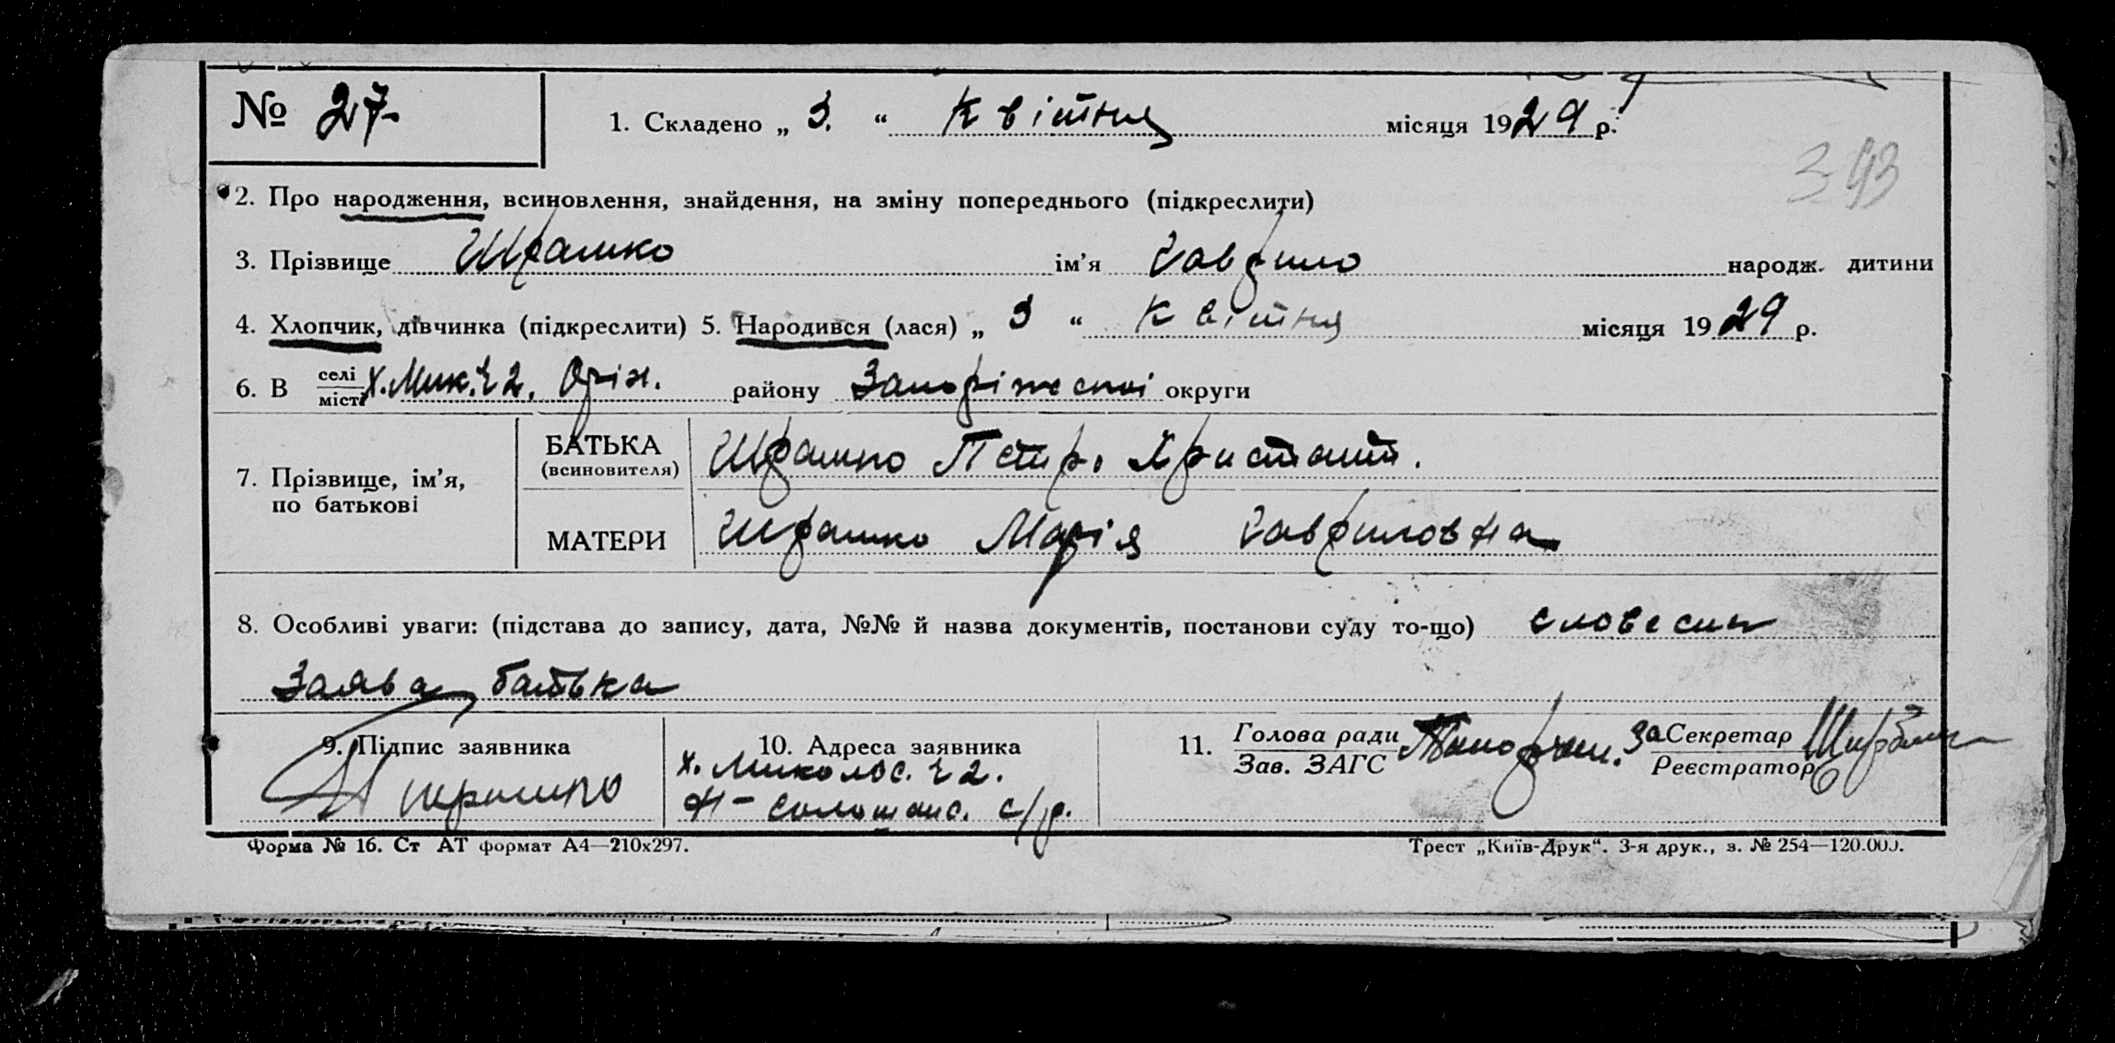 № 27-
1. Складено „ 3. “ Квітня місяця 1929 р.
343
2. Про народження, всиновлення, знайдення, на зміну попереднього (підкреслити)
3. Прізвище Шрамко ім’я Гаврило народж. дитини
4. Хлопчик, дівчинка (підкреслити) 5. Народився (лася) „ 3 “ Квітня місяця 1929 р.
6. В селі місті х. Мик. ч 2. Оріх. району Запоріжскої округи
7. Прізвище, ім’я, по батькові
БАТЬКА (всиновителя) Шрамко Петр.
МАТЕРИ Шрамко Марія Гавриловна
8. Особливі уваги: (підстава до запису, дата, №№ й назва документів, постанови суду то-що) словесна
Заява батька
9. Підпис заявника
П Шрамко
10. Адреса заявника
х. Миколос. ч 2.
с/р.
11. Голова ради За Секретар
Зав. ЗАГС Реєстратор
Форма № 16. Ст АТ формат А4—210х297.
Трест „Київ-Друк“. 3-я друк., з. № 254—120.000.